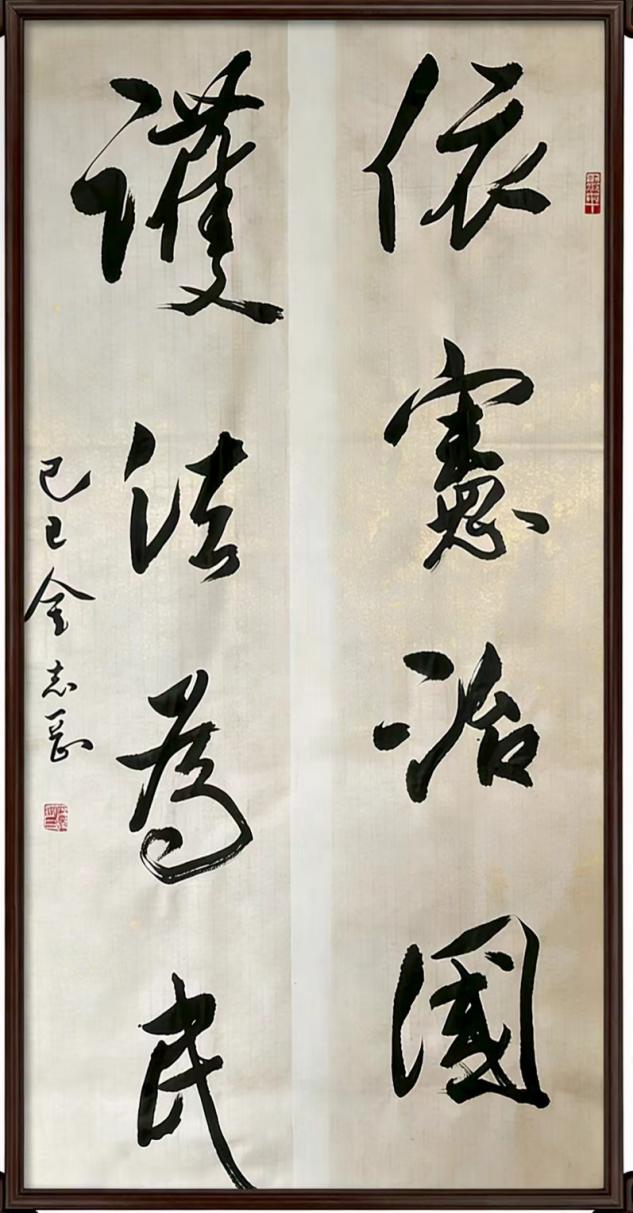 依憲治國
護法為民
己巳金志